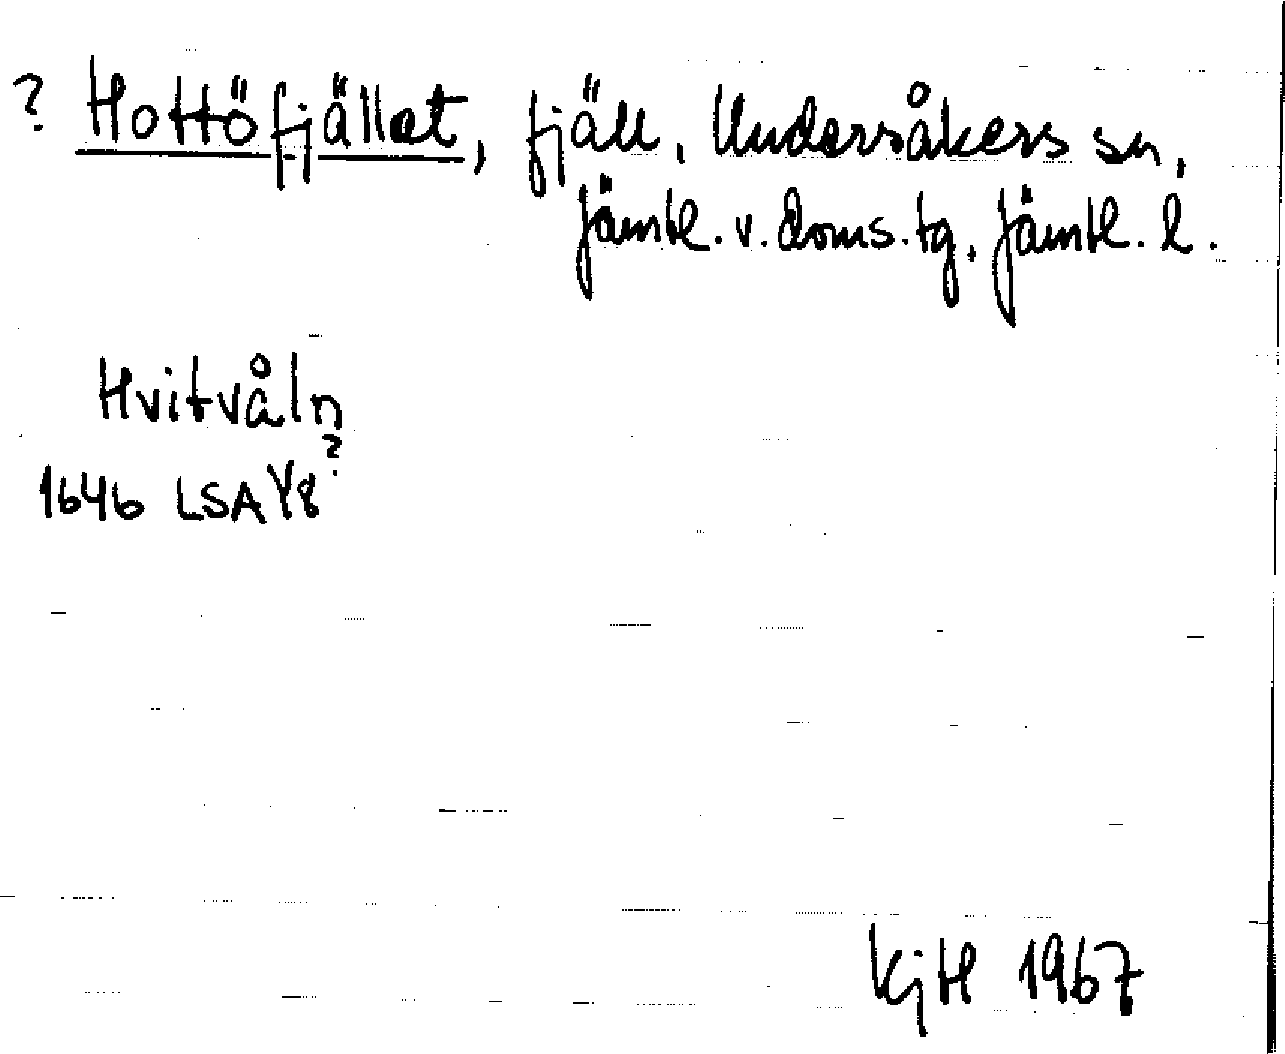 ? Hottöfjället, fjäll, Undersåkers sn,
Jämtl. v. doms. tg. Jämtl. l.
Hvitvåln
?
1646 LSA Y8
KjH 1967